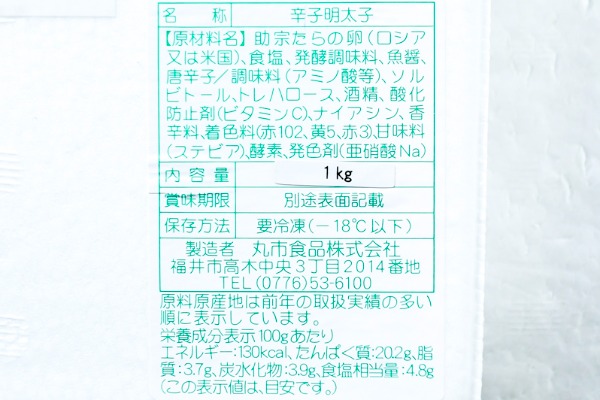 名称 辛子明太子
【原材料名】助宗たらの卵(ロシア
又は米国)、食塩、発酵調味料、魚醤、
唐辛子/調味料(アミノ酸等)、ソル
ビトール、トレハロース、酒精、酸化
防止剤(ビタミンC)、ナイアシン、香
辛料、着色料(赤102、黄5、赤3)、甘味料
(ステビア)、酵素、発色剤(亜硝酸Na)
内容量 1kg
賞味期限 別途表面記載
保存方法 要冷凍(－18℃以下)
製造者 丸市食品株式会社
福井市高木中央3丁目2014番地
TEL(0776)53-6100
原料原産地は前年の取扱実績の多い
順に表示しています。
栄養成分表示100gあたり
エネルギー:130kcal、たんぱく質:20.2g、脂
質:3.7g、炭水化物:3.9g、食塩相当量:4.8g
(この表示値は、目安です。)